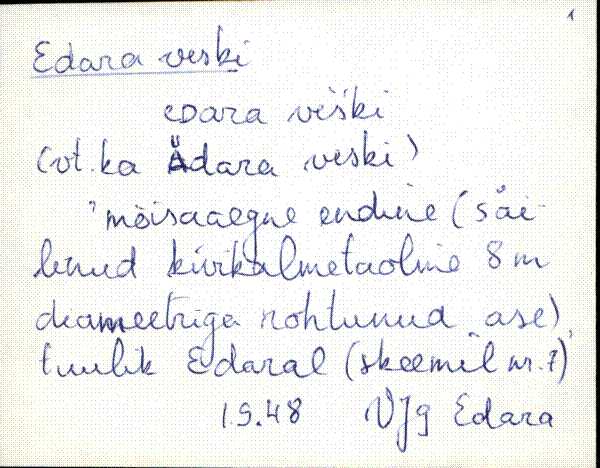 1
Edara veski
eDara veški
(vt. ka Ädara veski)
"mõisaaegne endine (säi-
linud kivikalmetaoline 8 m
diameetriga rohtunud ase)
tuulik Edaral (skeemil nr. 7)"
1.S.48 VJg Edara